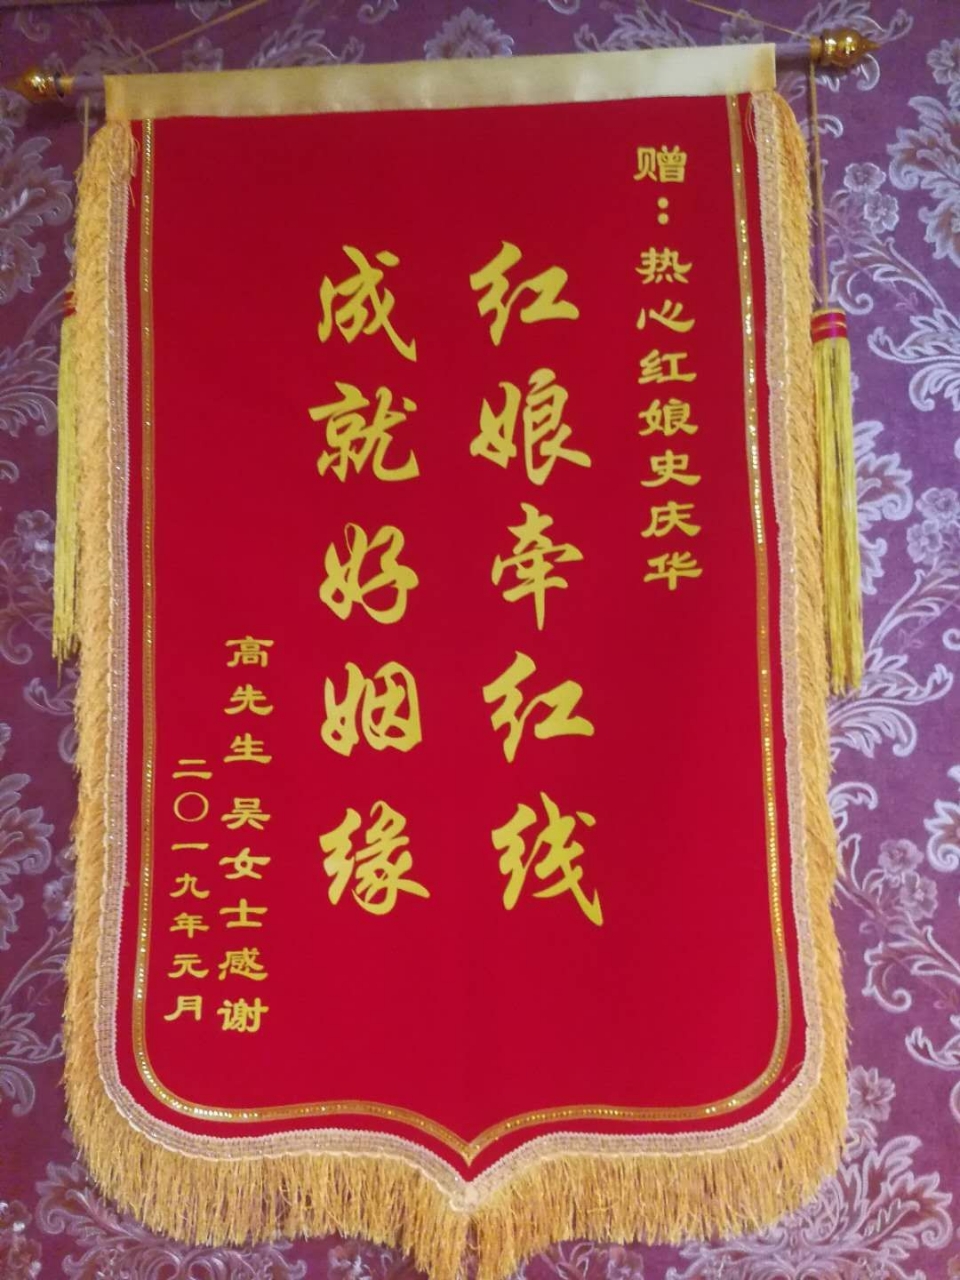 赠：热心红娘史庆华
红娘牵红线
成就好姻缘
高先生 吴女士感谢
二〇一九年元月